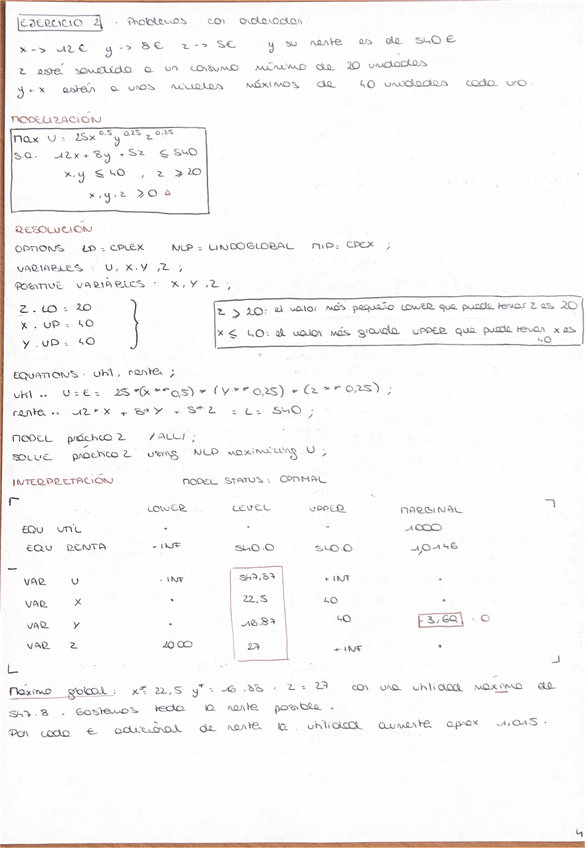 EJERCICIO 2. - Problemas con ordenador.
x -> 12€ y -> 8€ z -> 5€ y su renta es de 540€
z está sometido a un consumo mínimo de 20 unidades
y + x están a unos niveles máximos de 40 unidades cada uno.
MODELIZACIÓN
Max U = 25x^0,5 y^0,25 z^0,25
s.a. 12x + 8y + 5z ≤ 540
x, y ≤ 40 , z ≥ 20
x, y, z ≥ 0
RESOLUCIÓN
OPTIONS LD = CPLEX NLP = LINDOGLOBAL MIP = CPEX ;
VARIABLES : U, X, Y, Z ;
POSITIVE VARIABLES : X, Y, Z ;
Z. LO = 20
X. UP = 40
Y. UP = 40
z ≥ 20: el valor más pequeño LOWER que puede tomar z es 20
x ≤ 40: el valor más grande UPPER que puede tomar x es 40
EQUATIONS. util, renta ;
util .. U =E= 25 * (x ** 0,5) * (Y ** 0,25) * (z ** 0,25) ;
renta .. 12 * X + 8 * Y + 5 * Z =L= 540 ;
MODEL práctico2 /ALL/ ;
SOLVE práctico2 using NLP maximizing U ;
INTERPRETACIÓN MODEL STATUS : OPTIMAL
LOWER LEVEL UPPER MARGINAL
EQU UTIL . . . 1000
EQU RENTA -INF 540.0 540.0 1,0146
VAR U -INF 547,87 +INF .
VAR X . 22,5 40 .
VAR Y . 16.87 40 -3,6Q ≈ 0
VAR Z 2000 27 +INF .
Máximo global : x* = 22,5 y* = 16.88 . z = 27 con una utilidad máxima de
547.8 . Gastamos toda la renta posible .
Por cada € adicional de renta la utilidad aumenta aprox 1,015 .
4